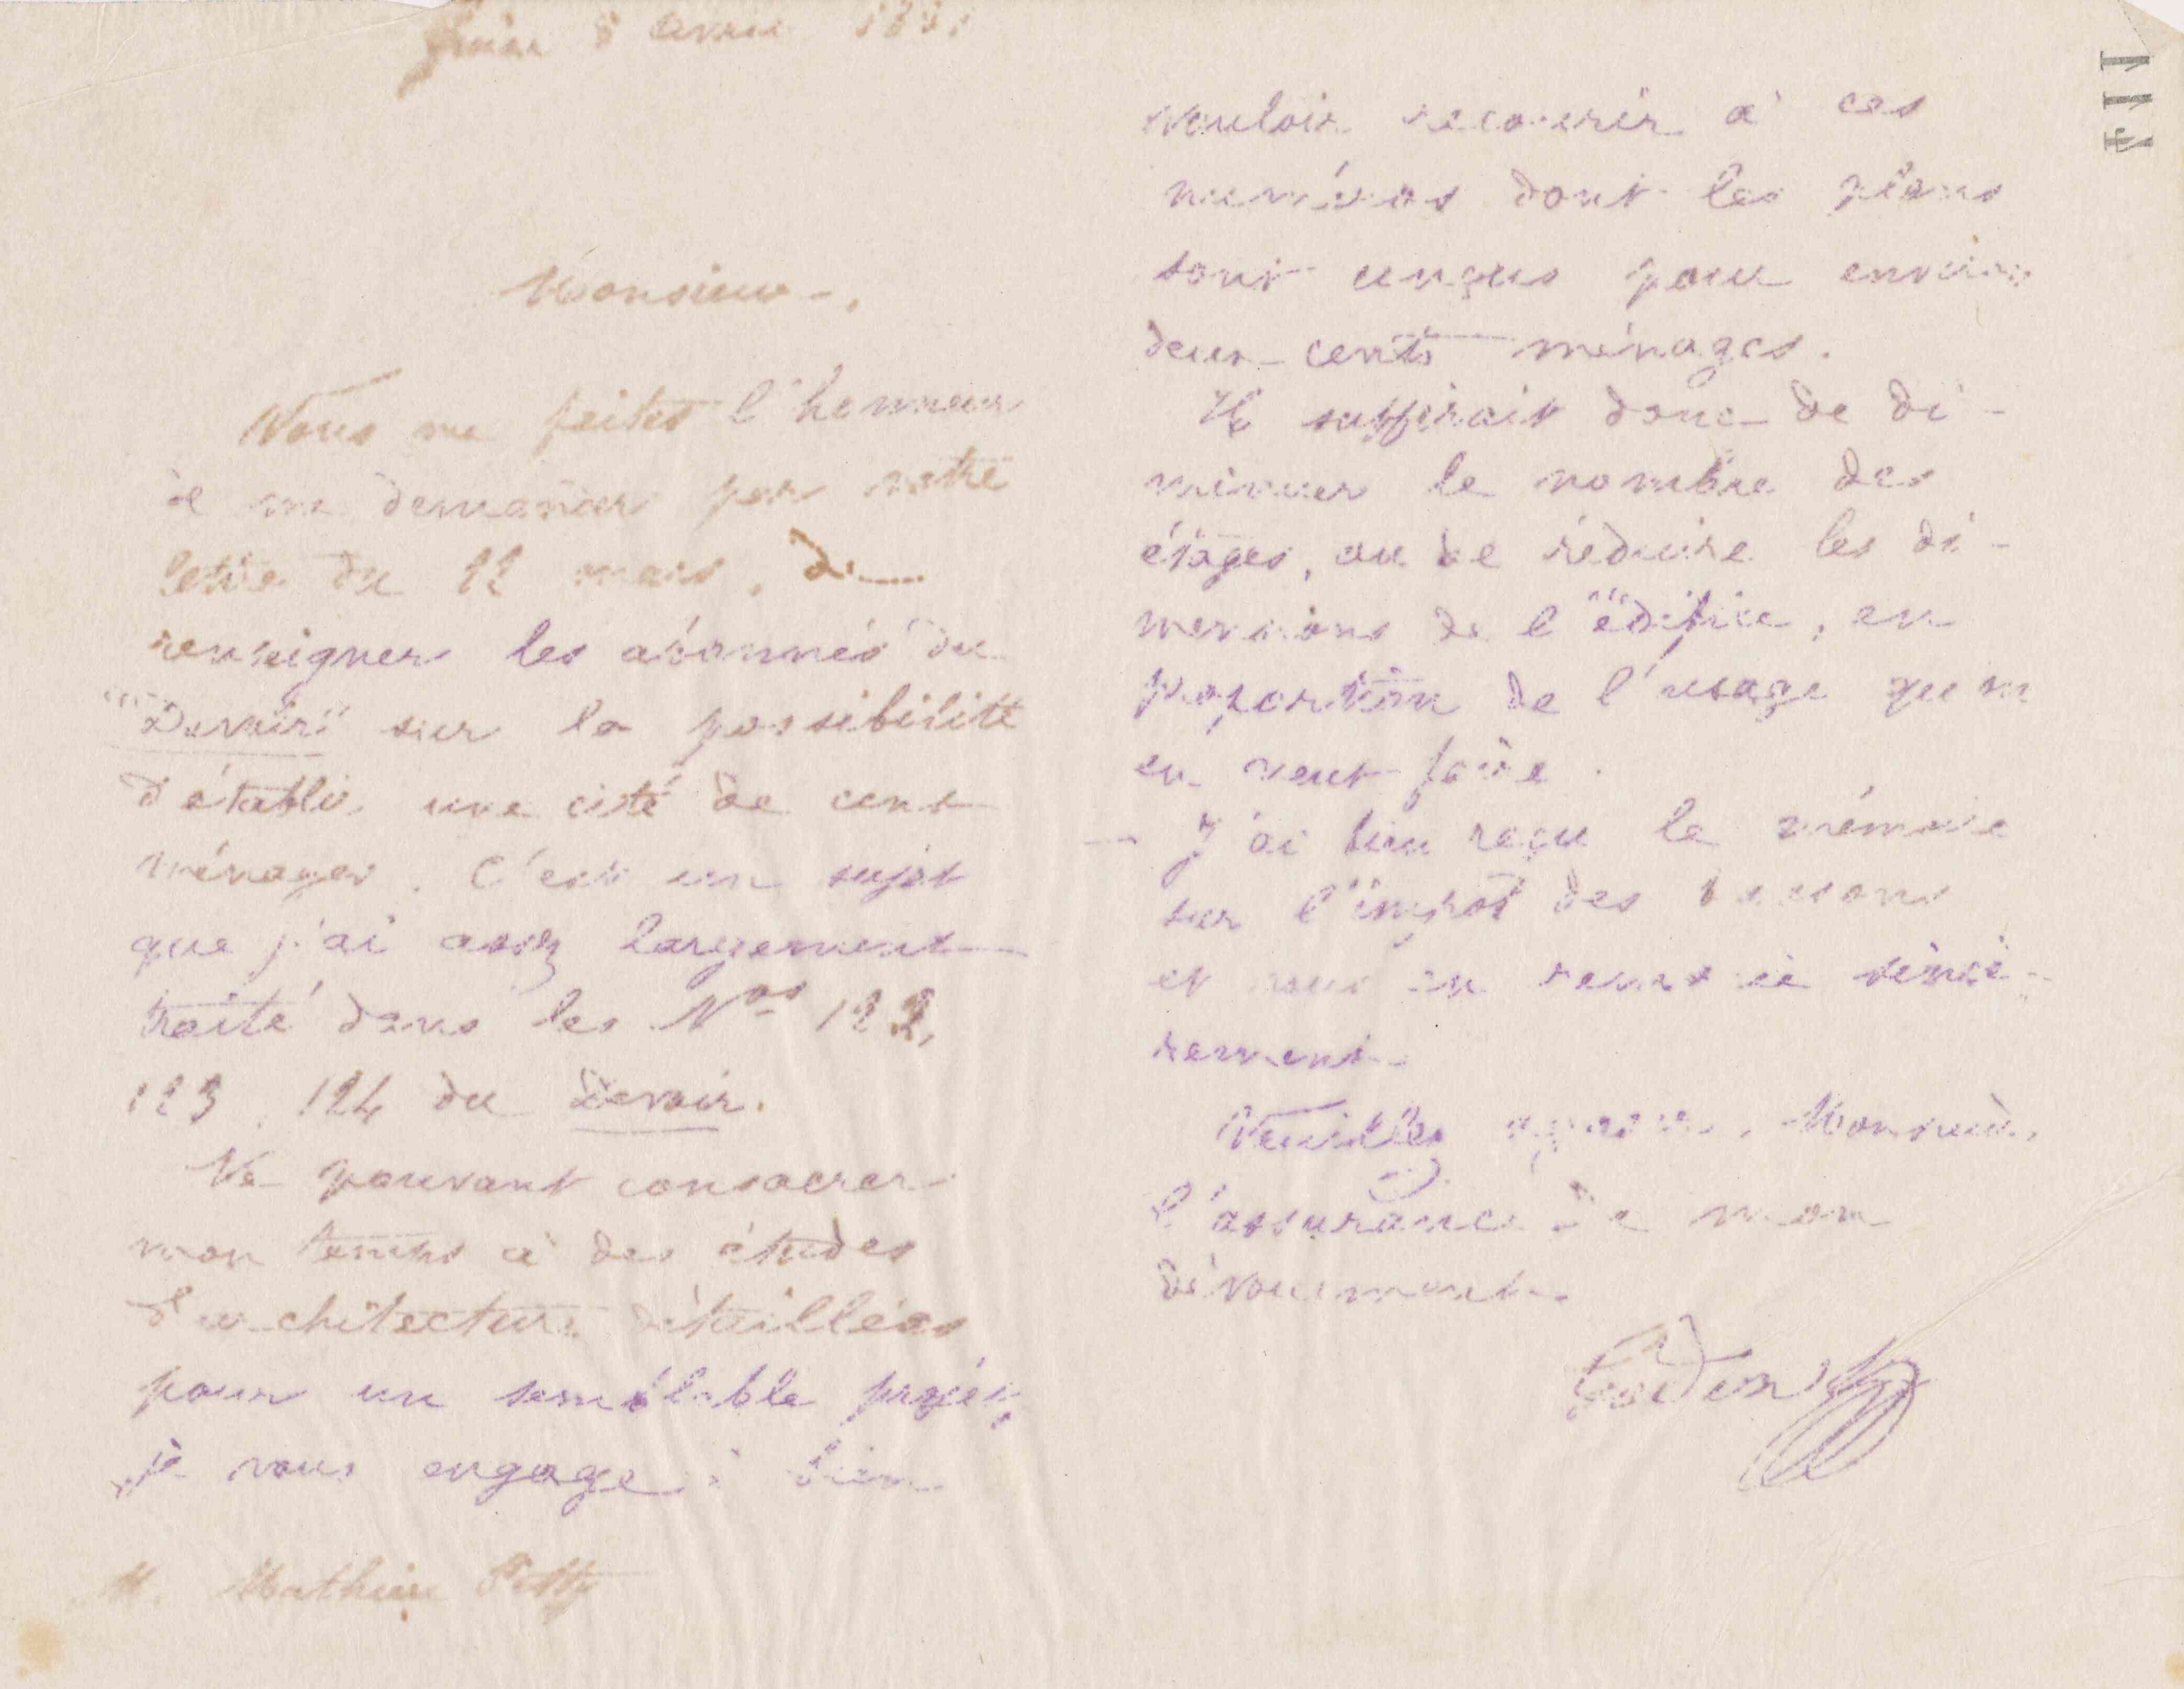 Guise 8 avril 1881
Monsieur,
Vous me faites l'honneur
de me demander par votre
lettre du 22 mars, de
renseigner les abonnés du
"Devoir" sur la possibilité
d'établir une cité de cent
ménages. C'est un sujet
que j'ai assez largement
traité dans les Nos 122,
123, 124 du Devoir.
Ne pouvant consacrer
mon temps à des études
d'architecture détaillées
pour un semblable projet,
je vous engage à bien
M. Mathieu
vouloir recourir à ces
numéros dont les plans
sont conçus pour environ
deux-cents ménages.
Il suffirait donc de di-
minuer le nombre des
étages, ou de réduire les di-
mensions de l'édifice, en
proportion de l'usage qu'on
en veut faire.
J'ai bien reçu le mémoire
sur l'impôt des boissons
et vous en remercie sincè-
rement.
Veuillez agréer, Monsieur,
l'assurance de mon
dévouement.
Godin